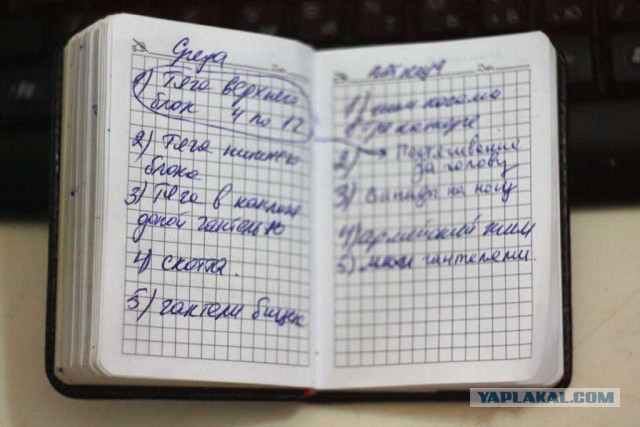 Среда
1) Тяга верхнего
блок 4 по 12
2) Тяга нижнего
блока
3) Тяга в наклоне
гантелью
4) скотта.
5) гантели бицек
пятница
1) жим
2) Подтягивание
за голову
3) Выпады на ногу
4) армейский жим
5) махи гантелями.
YAPLAKAL.COM